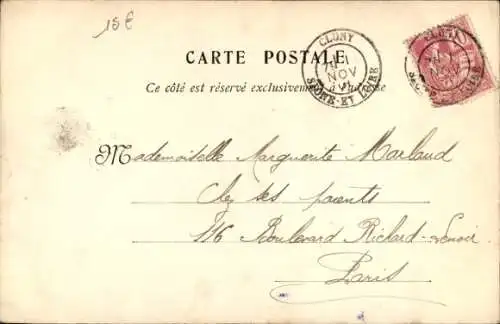 15€
CARTE POSTALE
Ce côté est réservé exclusivement à l'adresse
CLUNY
NOV
SAONE-ET-LOIRE
Mademoiselle Marguerite Marlaud
Chez ses parents
116 Boulevard Richard-Lenoir
Paris